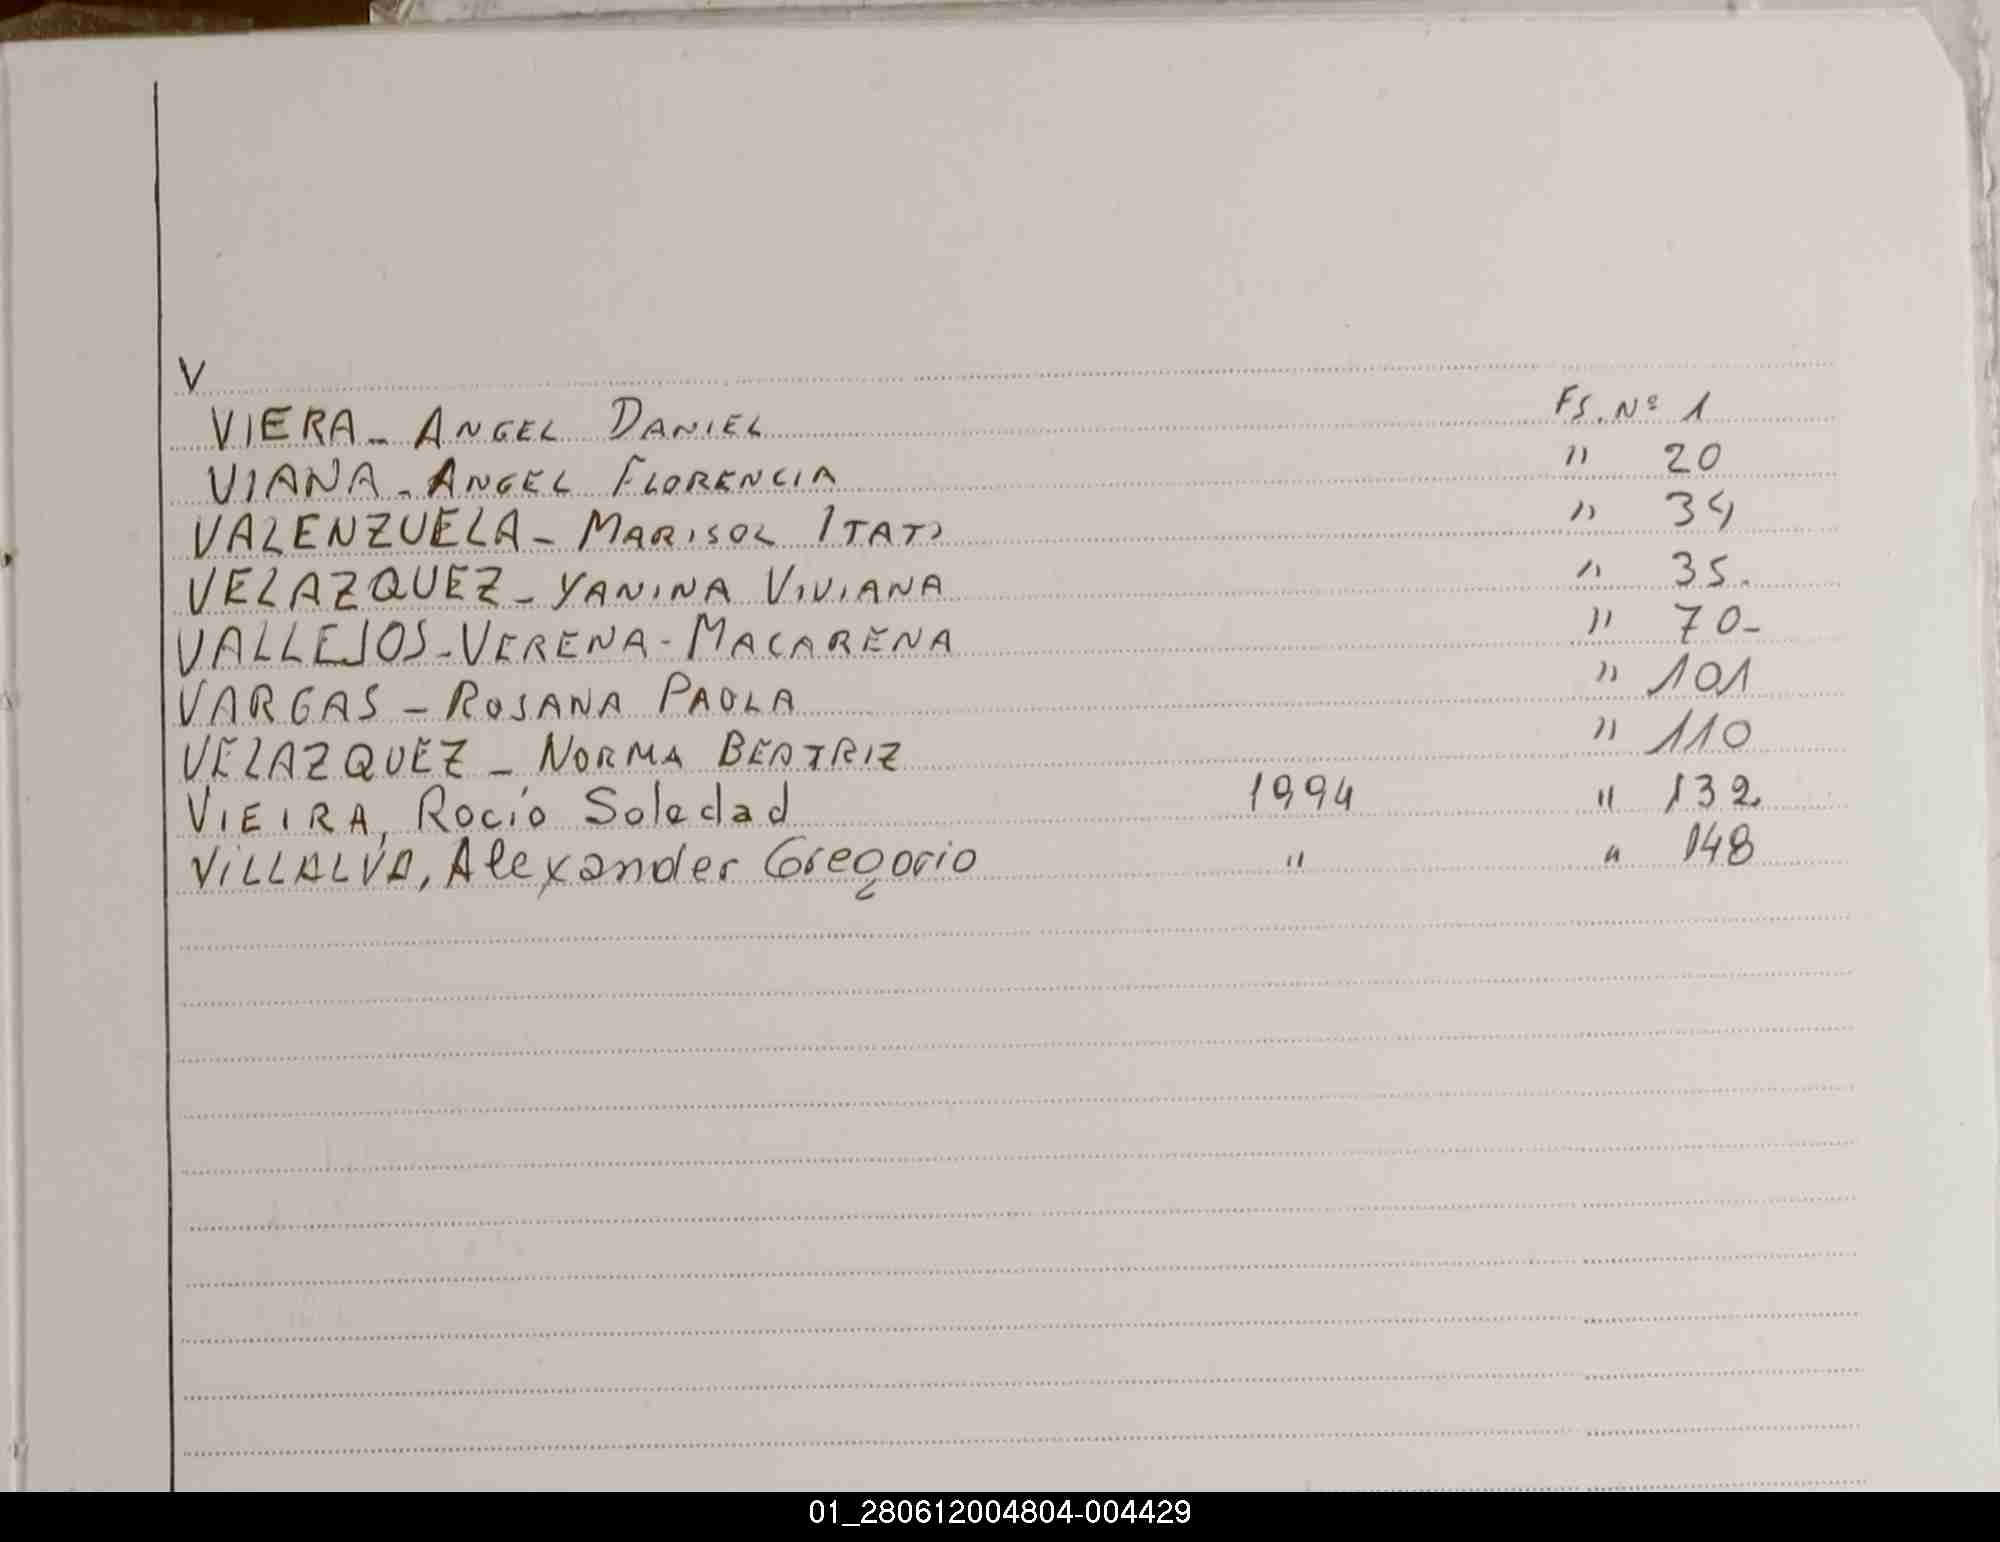 V
VIERA - ANGEL DANIEL Fs. Nº 1
VIANA - ANGEL FLORENCIA " 20
VALENZUELA - MARISOL ITATI " 34
VELAZQUEZ - YANINA VIVIANA " 35.
VALLEJOS - VERENA - MACARENA " 70-
VARGAS - ROSANA PAOLA " 101
VELAZQUEZ - NORMA BEATRIZ " 110
VIEIRA, Rocío Soledad 1994 " 132
VILLALVA, Alexander Gregorio " " 148
01_280612004804-004429